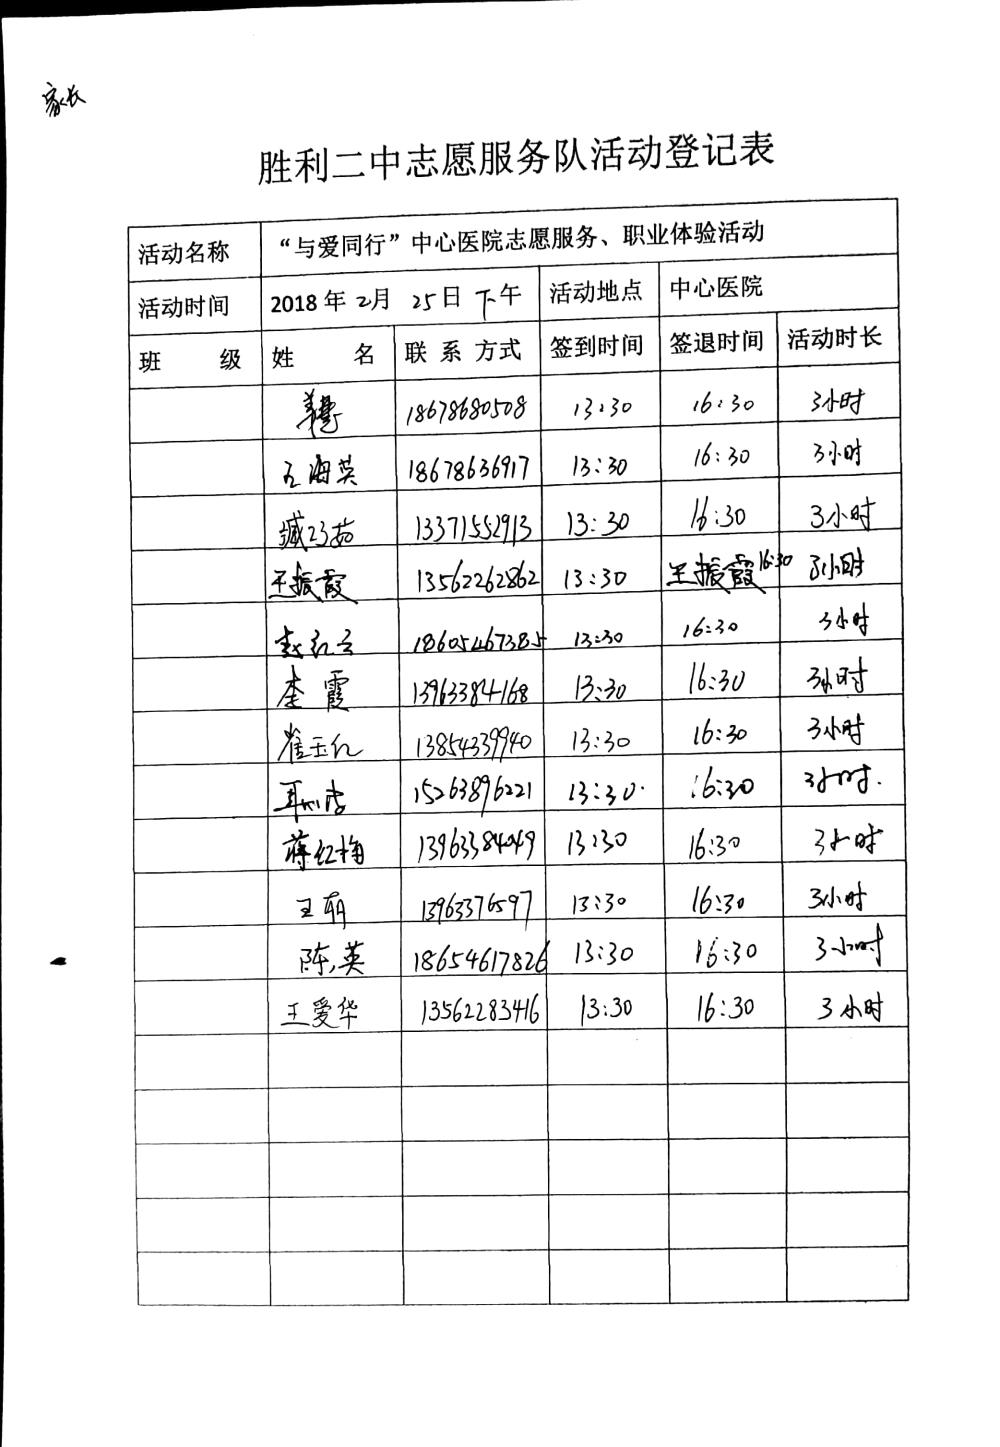 家长
胜利二中志愿服务队活动登记表
活动名称 “与爱同行”中心医院志愿服务、职业体验活动
活动时间 2018年2月 25日下午 活动地点 中心医院
班 级 姓 名 联系方式 签到时间 签退时间 活动时长
18678680508 13:30 16:30 3小时
王海英 18678636917 13:30 16:30 3小时
臧巧茹 13371552913 13:30 16:30 3小时
王振霞 13562262862 13:30 王振霞 16:30 3小时
赵红云 18605467385 13:30 16:30 3小时
李霞 13963384168 13:30 16:30 3小时
崔玉红 13854339940 13:30 16:30 3小时
15263896221 13:30 16:30 3小时.
蒋红梅 13963384049 13:30 16:30 3小时
王萌 13963376597 13:30 16:30 3小时
陈英 18654617826 13:30 16:30 3小时
王爱华 13562283416 13:30 16:30 3小时